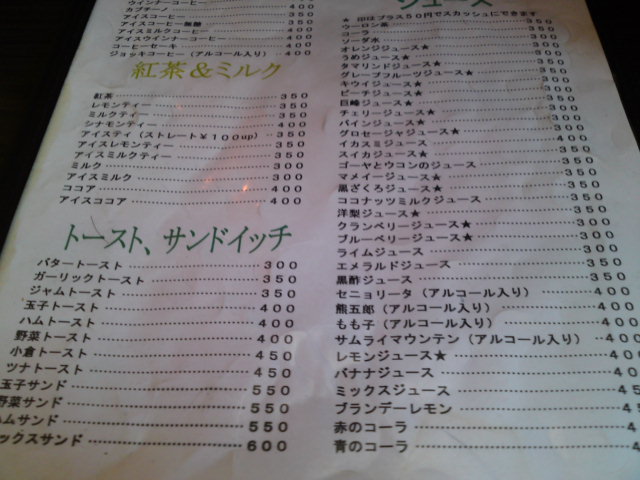 ウインナーコーヒー 400
カプチーノ 400
アイスコーヒー 350
アイスコーヒー無糖 350
アイスミルクコーヒー 350
アイスウインナーコーヒー 400
コーヒーセーキ 400
ジョッキコーヒー（アルコール入り） 400
紅茶＆ミルク
紅茶 350
レモンティー 350
ミルクティー 350
シナモンティー 400
アイスティ（ストレート￥100up） 350
アイスレモンティー 350
アイスミルクティー 350
ミルク 300
アイスミルク 300
ココア 400
アイスココア 400
トースト、サンドイッチ
バタートースト 300
ガーリックトースト 350
ジャムトースト 350
玉子トースト 400
ハムトースト 400
野菜トースト 400
小倉トースト 450
ツナトースト 450
玉子サンド 550
野菜サンド 550
ハムサンド 550
ックスサンド 600
ジュース
★ 印はプラス50円でスカッシュにできます
ウーロン茶 350
コーラ 350
ソーダ水 350
オレンジジュース★ 350
うめジュース★ 350
タマリンドジュース★ 350
グレープフルーツジュース★ 350
キウイジュース★ 350
ピーチジュース★ 350
巨峰ジュース★ 350
チェリージュース★ 350
パインジュース★ 350
グロセージャジュース★ 350
イカスミジュース 400
スイカジュース★ 350
ゴーヤとウコンのジュース 350
マメイージュース★ 350
黒ざくろジュース★ 350
ココナッツミルクジュース 350
洋梨ジュース★ 350
クランベリージュース★ 350
ブルーベリージュース★ 350
ライムジュース 350
エメラルドジュース 350
黒酢ジュース 350
セニョリータ（アルコール入り） 400
熊五郎（アルコール入り） 400
もも子（アルコール入り） 400
サムライマウンテン（アルコール入り） 400
レモンジュース★ 40
バナナジュース 40
ミックスジュース 45
ブランデーレモン 4
赤のコーラ 4
青のコーラ 4